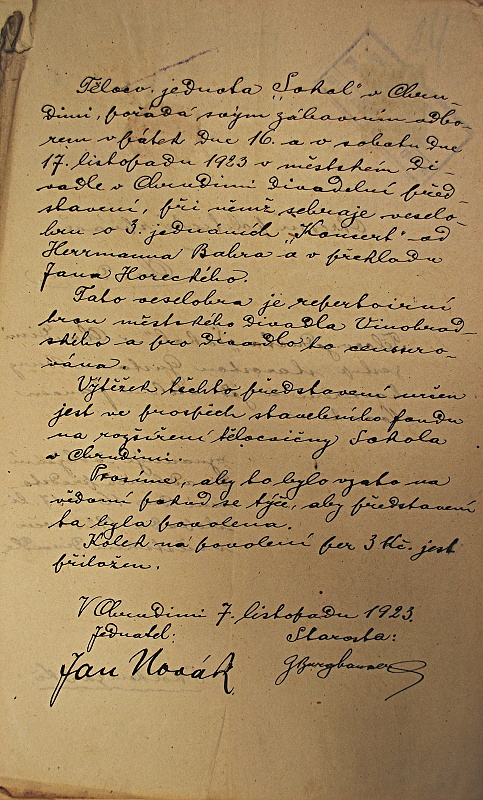 Tělocv. jednota „Sokol" v Chru-
dimi, pořádá svým zábavním odbo-
rem v pátek dne 16. a v sobotu dne
17. listopadu 1923 v městském Di-
vadle v Chrudimi divadelní před-
stavení, při němž sehraje veselo-
hru o 3. jednáních „Konsert" od
Herrmanna Bahra a v překladu
Jana Horeckého.
Tato veselohra je repertoirní
hrou městského divadla Vinohrad-
ského a pro divadlo to censuro-
vána.
Výtěžek těchto představení určen
jest ve prospěch stavebního fondu
na rozšíření tělocvičny Sokola
v Chrudimi.
Prosíme, aby to bylo vzato na
vědomí pokud se týče, aby představení
ta byla povolena.
Kolek na povolení per 3 Kč. jest
přiložen.
V Chrudimi 7. listopadu 1923.
Jednatel: Starosta:
Jan Novák